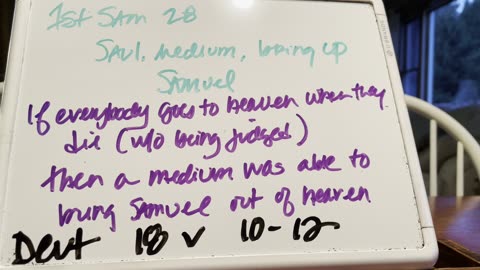 1st Sam 28
Saul, medium, bring up
Samuel
If everybody goes to heaven when they
die (w/o being judged)
then a medium was able to
bring Samuel out of heaven
Deut 18 v 10-12